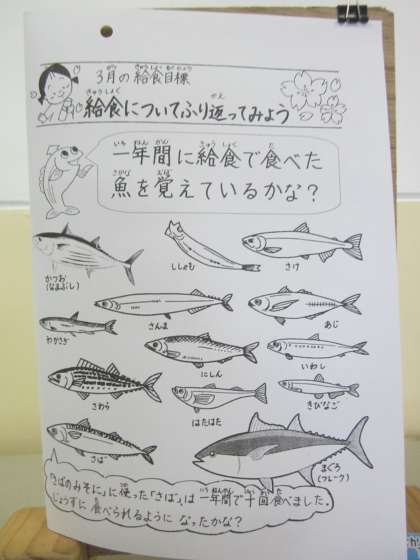 3月の給食目標
給食についてふり返ってみよう
一年間に給食で食べた
魚を覚えているかな？
かつお
(なまぶし)
ししゃも
さけ
さんま
あじ
わかさぎ
にしん
いわし
さわら
はたはた
きびなご
さば
まぐろ
(フレーク)
「さばのみそに」に使った「さば」は一年間で十回食べました。
じょうずに食べられるようになったかな？